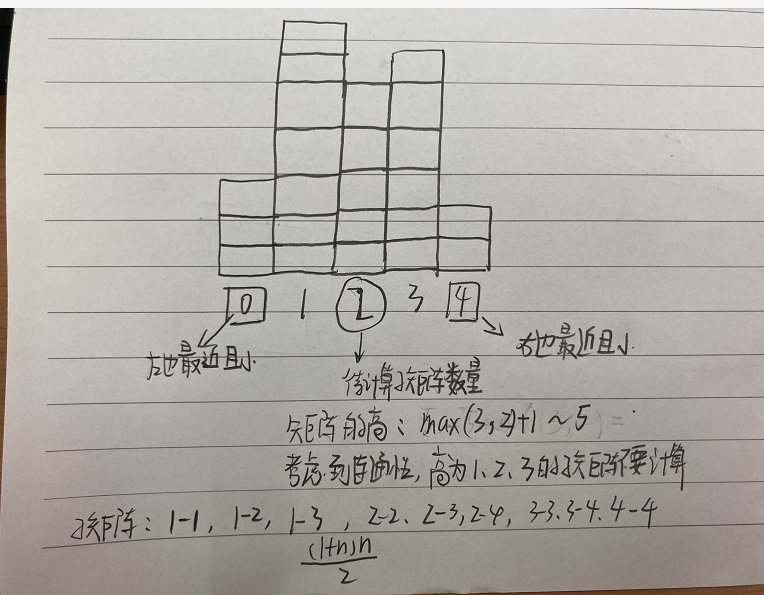 0 1 2 3 4
左边最近且小
右边最近且小
待计算子矩阵数量
矩阵的高：max(3,2)+1～5
考虑到连通性，高为1、2、3的子矩阵不要计算
子矩阵：1-1，1-2，1-3，2-2、2-3，2-4，3-3、3-4、4-4
(1+n)n
2